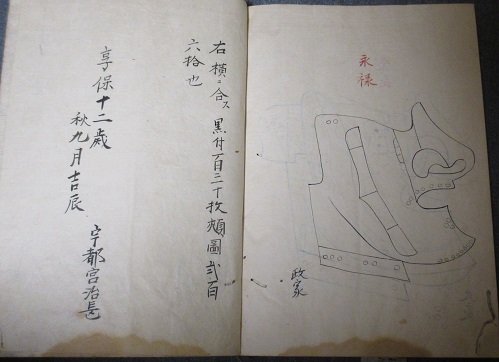 永禄
政家
右横ニ合ス黒付百三十枚頬圖弐百
六拾也
享保十二歳
秋九月吉辰
宇都宮治長